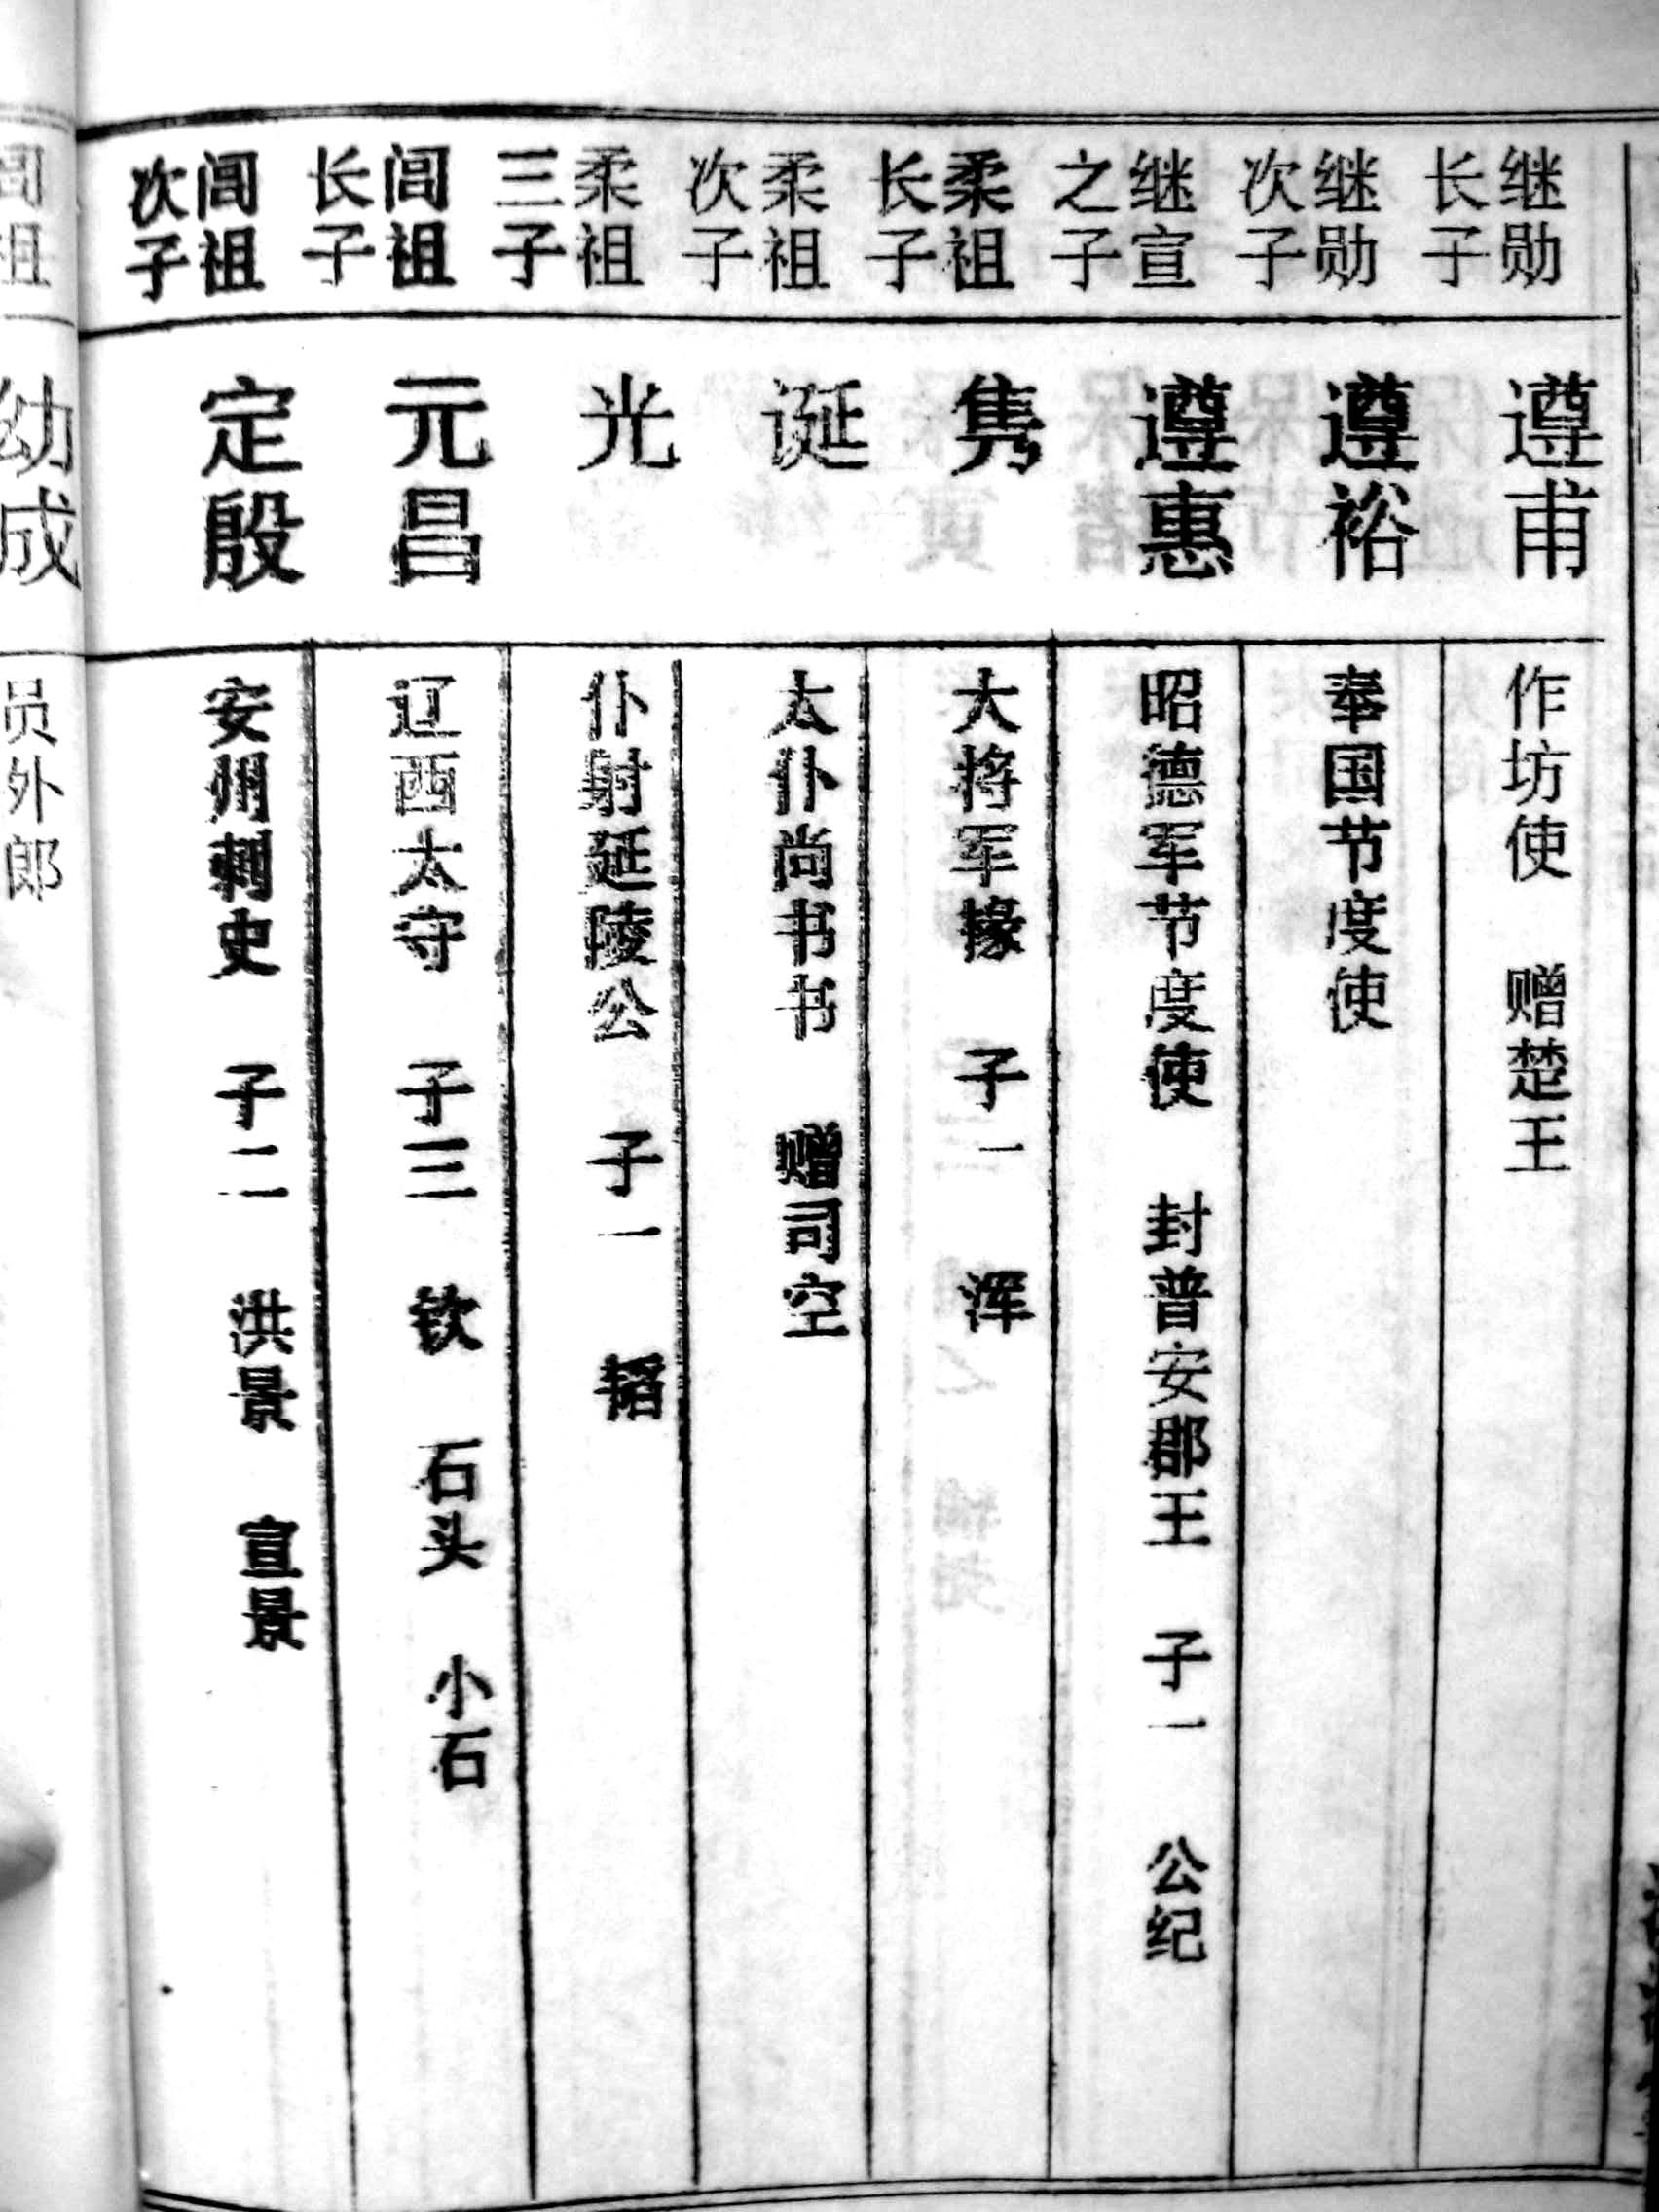 继勋
长子
遵甫
作坊使 赠楚王
继勋
次子
遵裕
奉国节度使
继宣
之子
遵惠
昭德军节度使 封普安郡王 子一 公纪
柔祖
长子
隽
大将军掾 子一 浑
柔祖
次子
诞
太仆尚书书 赠司空
柔祖
三子
光
仆射延陵公 子一 韬
闾祖
长子
元昌
辽西太守 子三 钦 石头 小石
闾祖
次子
定殷
安州刺史 子二 洪景 宣景
闾祖
幼成
员外郎